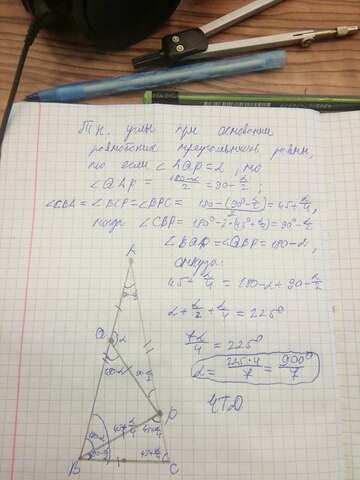 Т.к. углы при основании
равнобедр. треугольников равны,
то если ∠AQP=α, то
∠QAP = (180-α)/2 = 90-α/2;
∠CBA=∠BCP=∠BPC= (180-(90-α/2))/2 = 45+α/4,
тогда ∠CBP=180°-2·(45°+α/4)=90°-α/2
∠BQP=∠QBP=180-α,
откуда:
45+α/4=180-α+90-α/2
α+α/2+α/4=225°
7α/4=225°
α=225·4/7=900°/7
ЧТД
A
Q
α
180-α
P
45+α/4
B
C